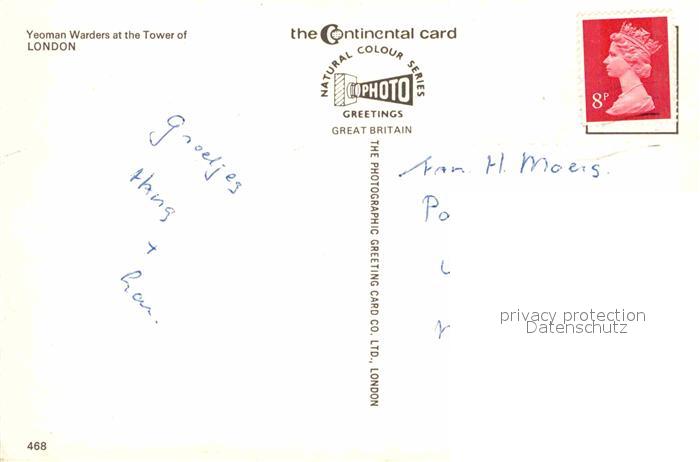 Yeoman Warders at the Tower of
LONDON
the Continental card
NATURAL COLOUR SERIES
PHOTO
GREETINGS
GREAT BRITAIN
8P
THE PHOTOGRAPHIC GREETING CARD CO. LTD., LONDON
Groetjes
+
Fam. H. Moers.
Po
privacy protection
Datenschutz
468